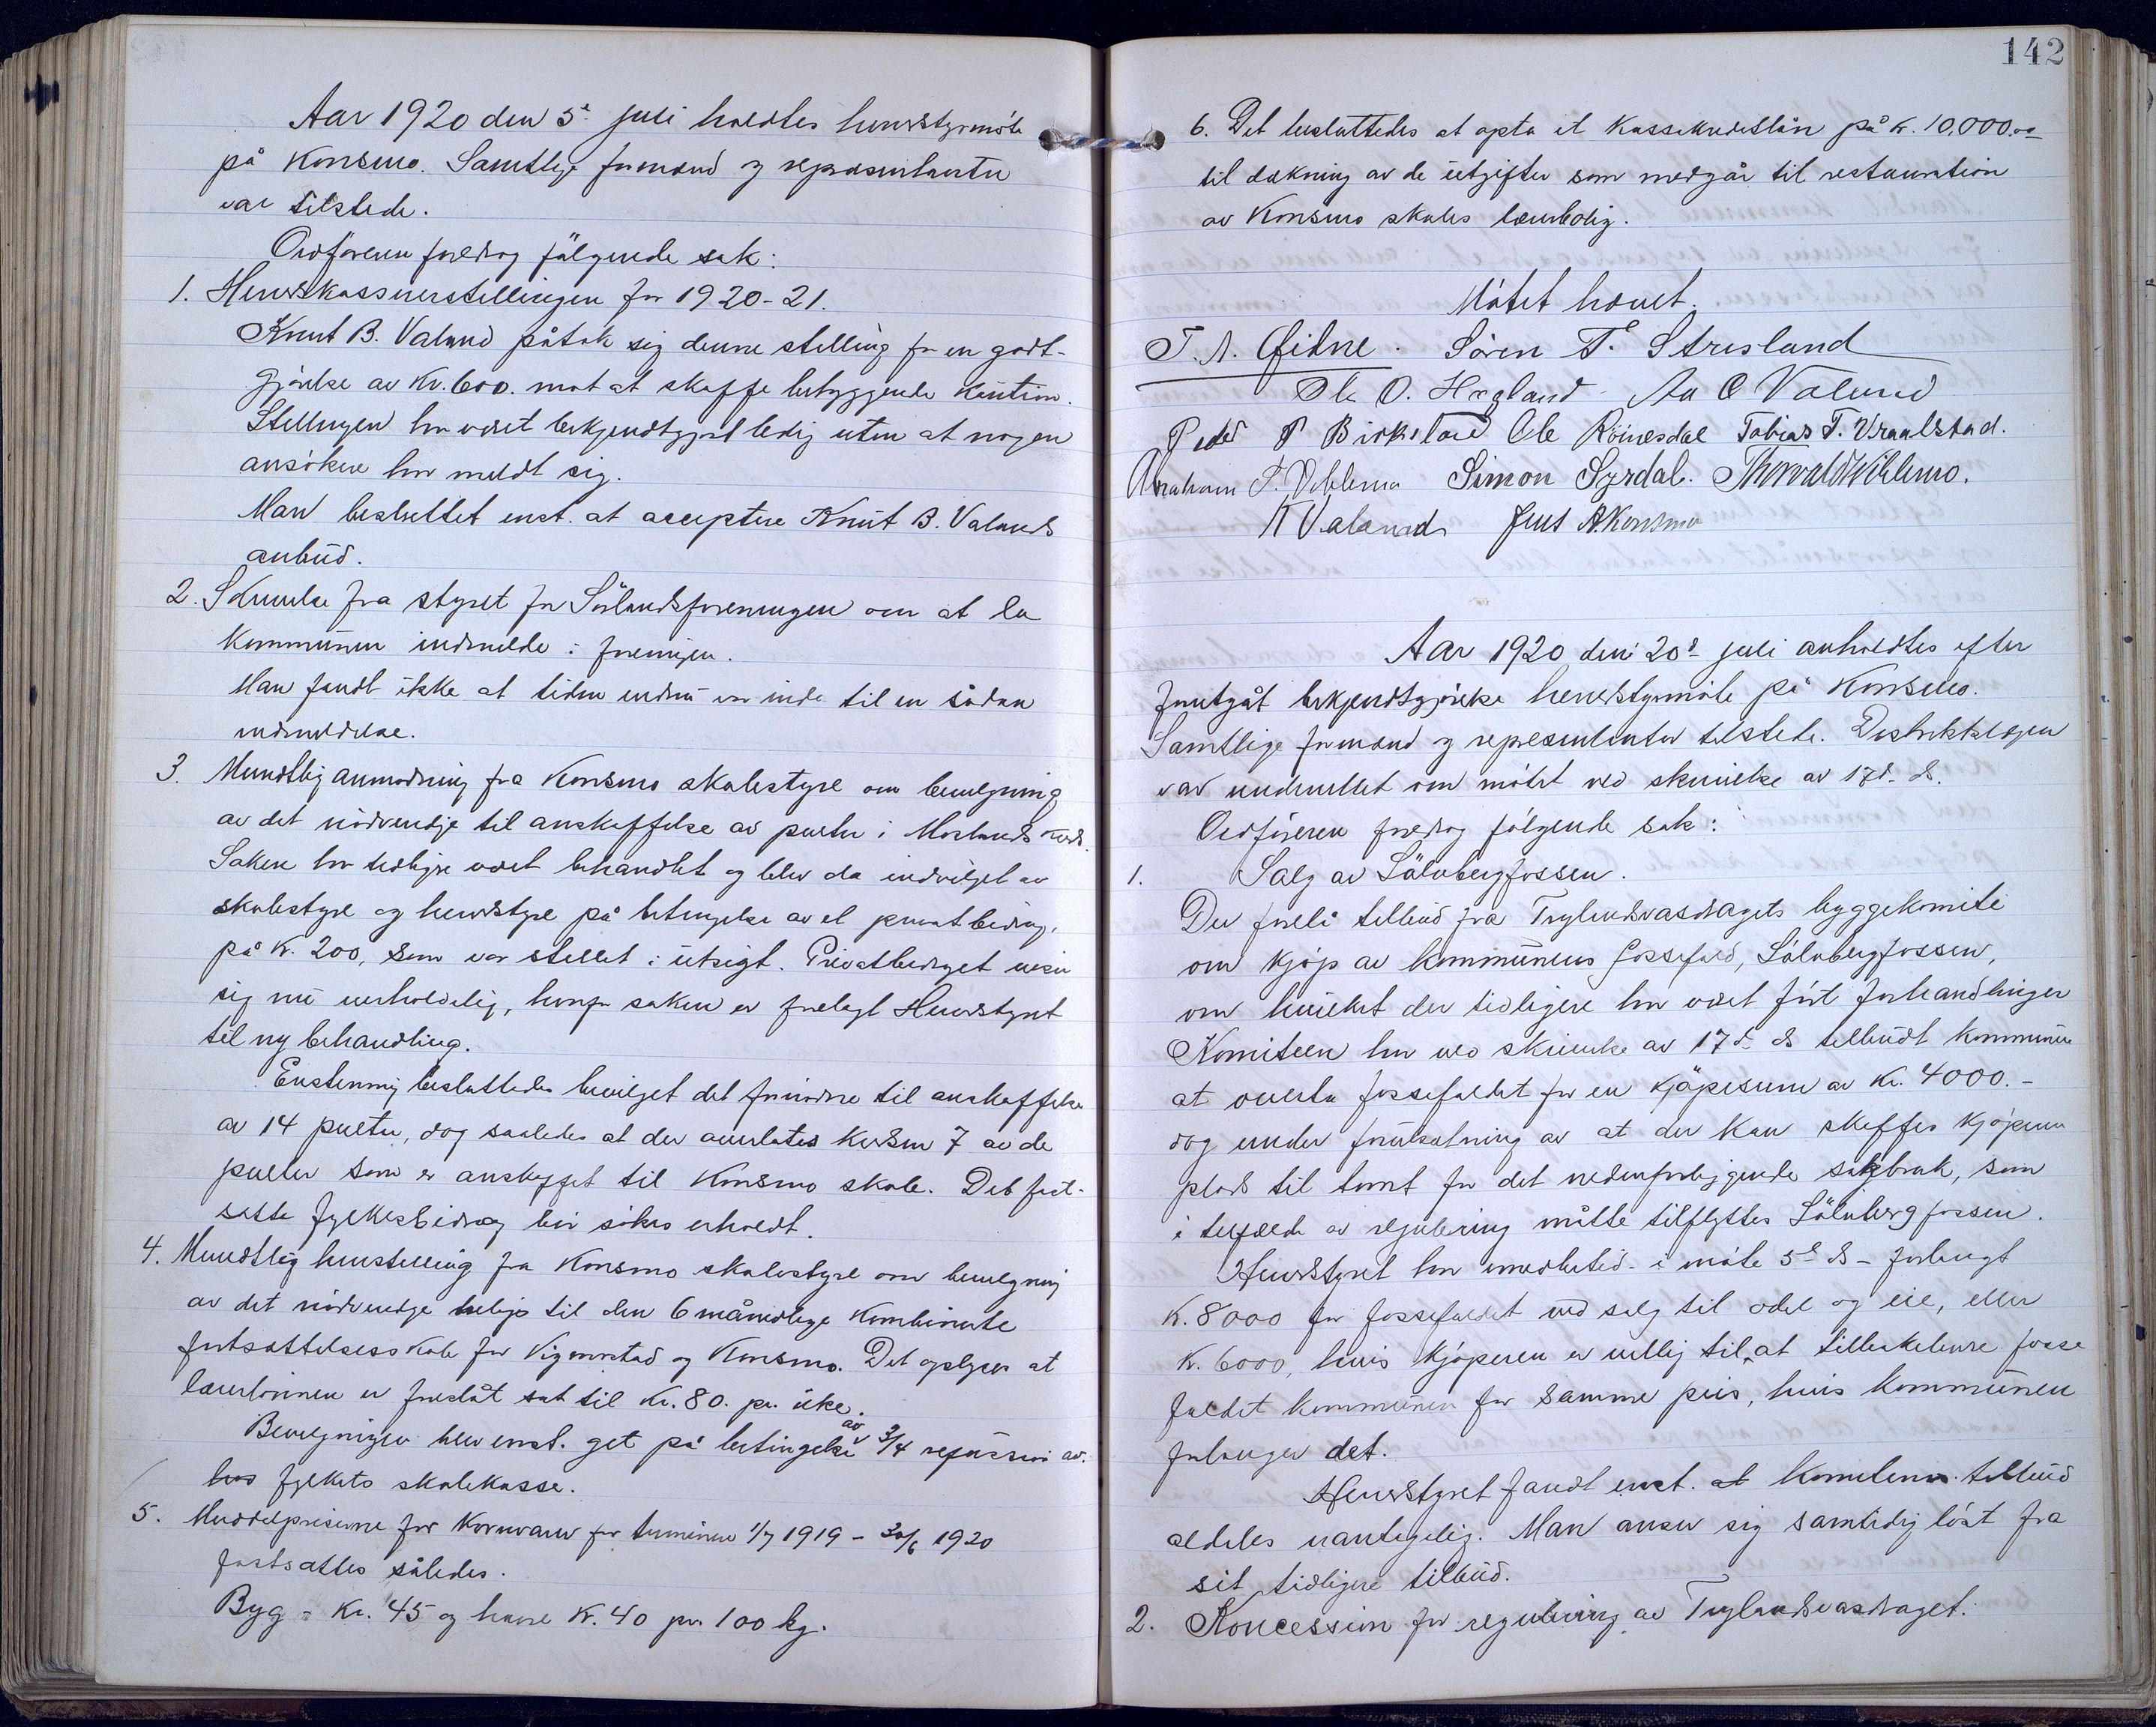 Aar 1920 den 5t juli holdtes herredstyrmöte
på Konsmo. Samtlige formænd og repræsentanter
var tilstede.
Ordföreren foredrog fölgende sak:
1. Herredskassererstillingen for 1920-21.
Knut B. Valand påtok sig denne stilling for en godt-
gjörelse av Kr. 600. mot at skaffe betryggende kaution.
Stillingen har været bekjendtgjort ledig uten at nogen
ansökere har meldt sig.
Man besluttet enst. at acceptere Knut B. Valands
anbud.
2. Skrivelse fra styret for Sörlandsforeningen om at la
Kommunen indmelde i foreningen.
Man fandt ikke at tiden endnu var inde til en sådan
indmeldelse.
3. Mundtlig anmodning fra Konsmo skolestyre om bevilgning
av det nödvendige til anskaffelse av pulter i Moslands kreds.
Saken har tidligere været behandlet og blev da indvilget av
skolestyre og herredstyre på betingelse av et privat bidrag,
på kr. 200, som var stillet i utsigt. Privatbidraget viser
sig nu uerholdelig, hvorfor saken er forelagt Herredstyret
til ny behandling.
Enstemmig besluttedes bevilget det fornödne til anskaffelse
av 14 pulter, dog saaledes at der overlates kredsen 7 av de
pulter som er anskaffet til Konsmo skole. Det fast-
satte fylkesbidrag bör sökes erholdt.
4. Mundtlig henstilling fra Konsmo skolestyre om bevilgning
av det nödvendige belöp til den 6 månedlige kombinerte
fortsættelsesskole for Vigmostad og Konsmo. Det oplyses at
lærerlönnen er foreslåt sat til kr. 80. pr. uke.
Bevilgningen blev enst. git på betingelse av 3/4 refusion av
hos fylkets skolekasse.
5. Middelprisene for Kornvarer for terminen 1/7 1919 - 30/6 1920
fastsattes således.
Byg - Kr. 45 og havre Kr. 40 pr. 100 kg.
142
6. Det besluttedes at opta et Kassekreditlån på kr. 10,000.00
til dækning av de utgifter som medgår til restauration
av Konsmo skoles lærerbolig.
Mötet hævet.
T. A. Øidne. Sören T. Strisland
Ole O. Hægland Aa O Valand
Peder P Birkeland Ole Röinesdal Tobias T. Vraalstad.
Abraham T. Viblemo Simon Syrdal. Thorvald Viblemo.
K Valand Jens A Konsmo
Aar 1920 den 20d juli avholdtes efter
forutgåt bekjendtgjörelse herredstyrmöte på Konsmo.
Samtlige formænd og representanter tilstede. Distriktslægen
var underrettet om mötet ved skrivelse av 17d. ds.
Ordföreren foredrog fölgende sak:
1. Salg av Sölvbergfossen.
Der forelå tilbud fra Trylandsvasdragets byggekomite
om kjöp av kommunens fossefald, Sölvbergfossen,
om hvilket der tidligere har været fört forhandlinger
Komiteen har ved skrivelse av 17d. ds tilbudt kommunen
at overta fossefaldet for en kjöpesum av kr. 4000.-
dog under forutsætning av at der kan skaffes kjöperen
plads til tomt for det nedenforliggende sagbruk, som
i tilfælde av regulering måtte tilflyttes Sölvbergfossen.
Herredstyret har imedlertid - i möte 5d ds - forlangt
kr. 8000 for fossefaldet ved salg til odel og eie, eller
kr. 6000, hvis kjöperen er villig til at tilbakelevere fosse
faldet kommunen for samme pris, hvis kommunen
forlanger det.
Herredstyret fandt enst. at komiteens tilbud
aldeles uantagelig. Man anser sig samtidig löst fra
sit tidligere tilbud.
2. Koncession for regulering av Trylandsvasdraget.